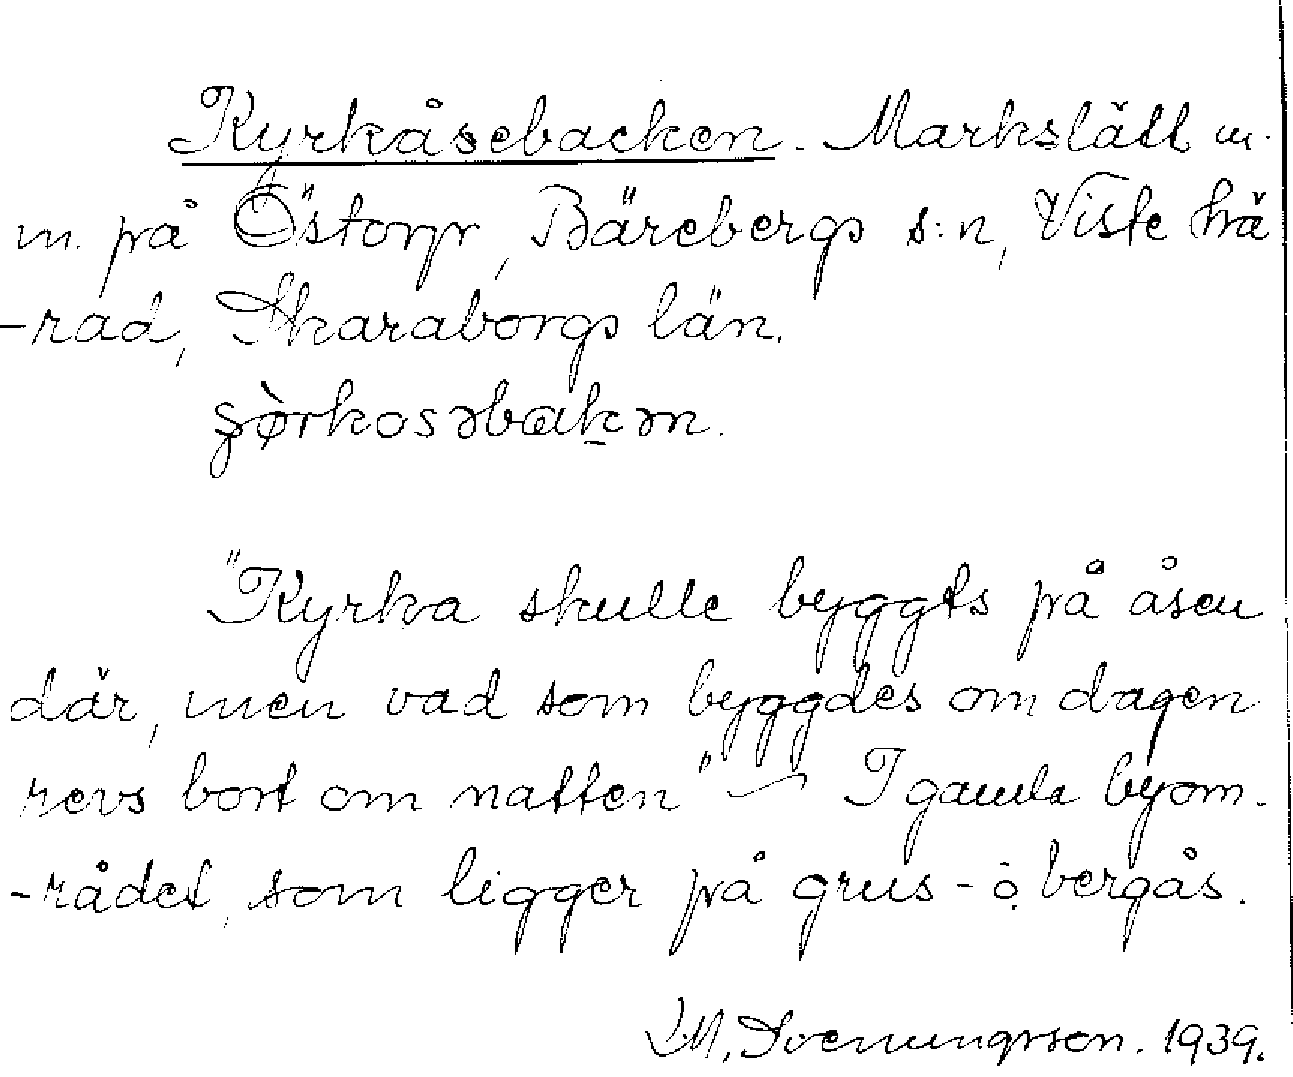 Kyrkåsebacken. Markslätt m.
m. på Östorp, Bärebergs s:n, Viste hä
-rad, Skaraborgs län.
"Kyrka skulle byggts på åsen
där, men vad som byggdes om dagen
revs bort om natten" — I gamla byom-
-rådet, som ligger på grus- o. bergås.
Svenungsson. 1939.